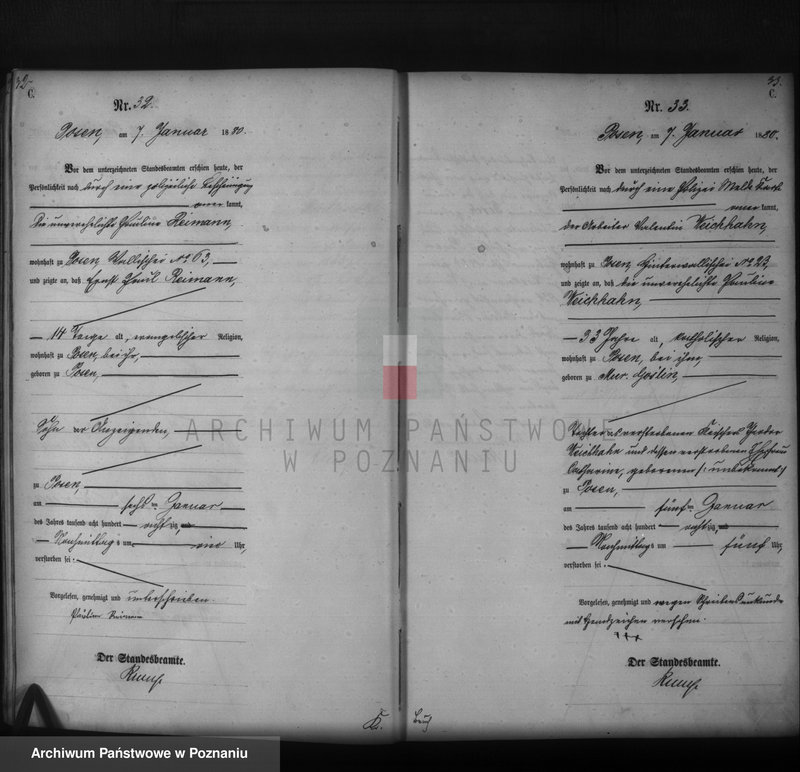 32
C.
Nr. 32.
Posen, am 7. Januar 1880.
Vor dem unterzeichneten Standesbeamten erschien heute, der
Persönlichkeit nach durch eine polizeiliche
kannt,
die unverehelichte Pauline Reimann,
wohnhaft zu Posen Wallischei No 63,
und zeigte an, daß Ernst Paul Reimann,
14 Tage alt, evangelischer Religion,
wohnhaft zu Posen, bei ihr,
geboren zu Posen,
Sohn der Anzeigenden,
zu Posen,
am sechs ten Januar
des Jahres tausend acht hundert achtzig und
Nachmittags um Uhr,
verstorben sei.
Vorgelesen, genehmigt und unterschrieben.
Pauline Reimann
Der Standesbeamte.
33.
C.
Nr. 33.
Posen, am 7. Januar 1880.
Vor dem unterzeichneten Standesbeamten erschien heute, der
Persönlichkeit nach durch eine Polizei Melde Karte
kannt,
der Arbeiter Valentin Weichhahn,
wohnhaft zu Posen, Hinterwallischei No 23,
und zeigte an, daß die unverehelichte Pauline
Weichhahn,
33 Jahre alt, katholischer Religion,
wohnhaft zu Posen, bei ihm,
geboren zu Mur. Goslin,
Tochter des verstorbenen
Weichhahn und dessen verstorbenen Ehefrau
Catharine, geborenen /: unbekannt :/
zu Posen,
am fünf ten Januar
des Jahres tausend acht hundert achtzig und
Nachmittags um fünf Uhr,
verstorben sei.
Vorgelesen, genehmigt und wegen Schreibensunkunde
mit Handzeichen versehen.
+++
Der Standesbeamte.
ARCHIWUM PAŃSTWOWE
W POZNANIU
Archiwum Państwowe w Poznaniu